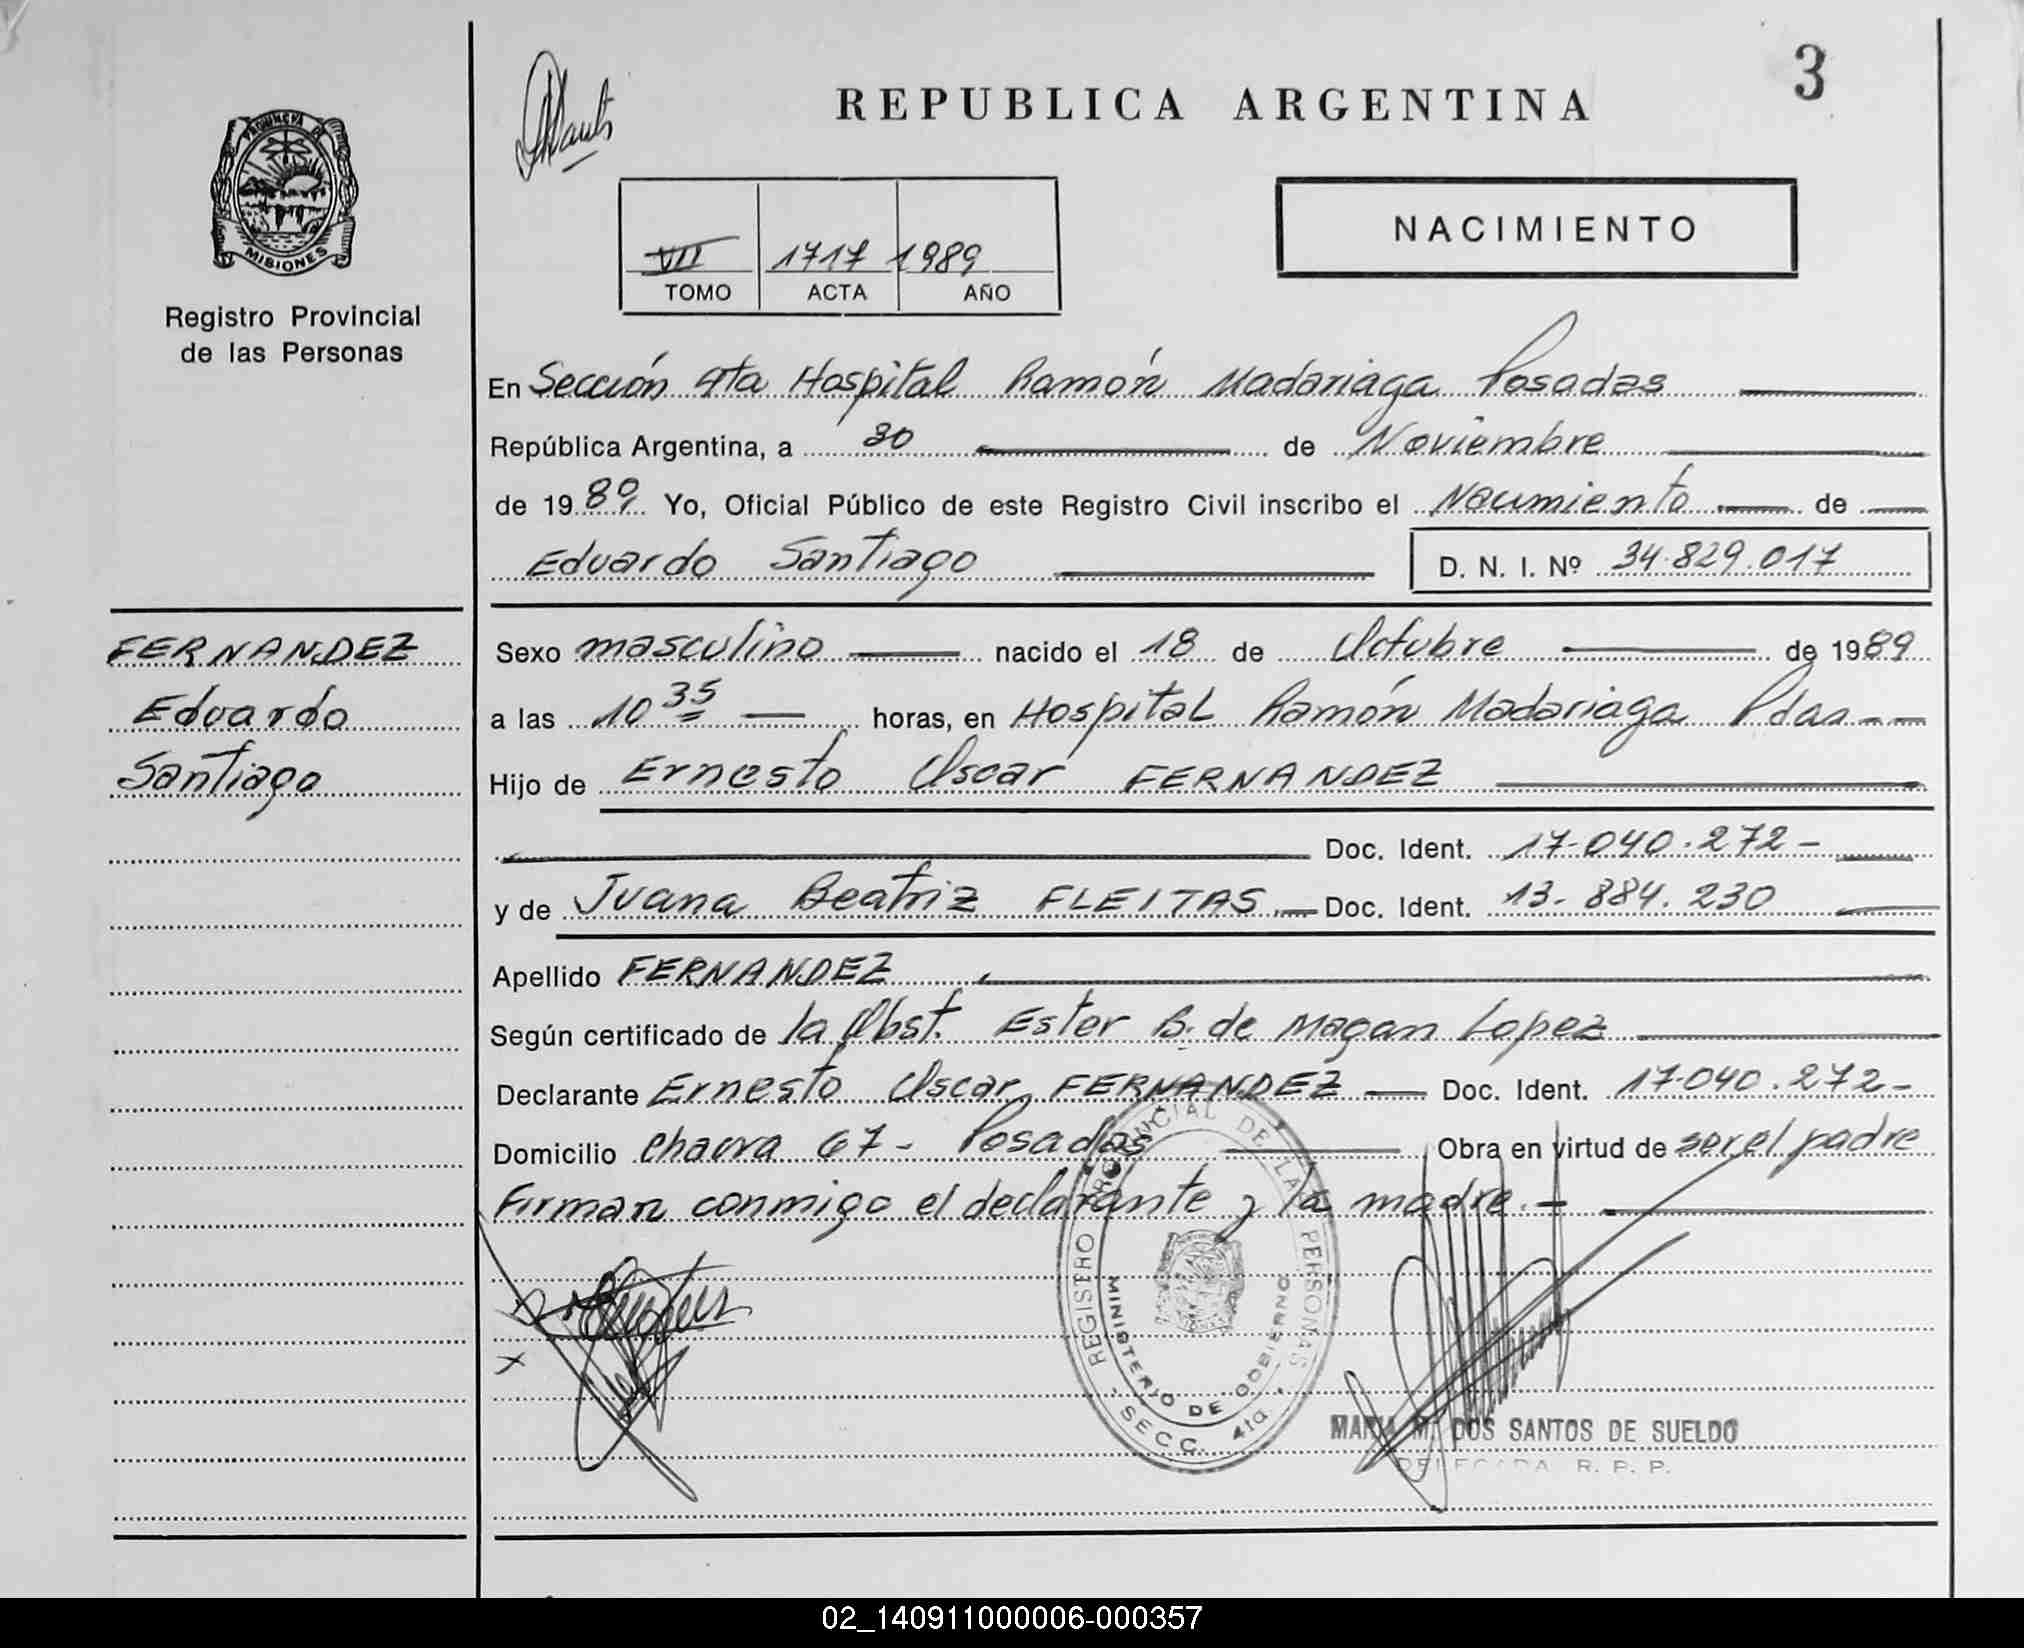 3
REPUBLICA ARGENTINA
PROVINCIA DE
MISIONES
Registro Provincial
de las Personas
NACIMIENTO
VII 1717 1989
TOMO ACTA AÑO
En Sección 4ta Hospital Ramón Madariaga Posadas
República Argentina, a 30 de Noviembre
de 1989 Yo, Oficial Público de este Registro Civil inscribo el Nacimiento de
Eduardo Santiago D. N. I. Nº 34.829.017
FERNANDEZ
Eduardo
Santiago
Sexo masculino nacido el 18 de Octubre de 1989
a las 10 35 horas, en Hospital Ramón Madariaga Pdas
Hijo de Ernesto Oscar FERNANDEZ
Doc. Ident. 17.040.272
y de Juana Beatriz FLEITAS Doc. Ident. 13.884.230
Apellido FERNANDEZ
Según certificado de la Obst. Ester B. de Magan Lopez
Declarante Ernesto Oscar FERNANDEZ Doc. Ident. 17.040.272
Domicilio 67 - Posadas Obra en virtud de ser el padre
Firman conmigo el declarante y la madre.
REGISTRO PROVINCIAL DE LAS PERSONAS
MINISTERIO DE GOBIERNO
SECC. 4ta.
MARIA M. DOS SANTOS DE SUELDO
DELEGADA R. P. P.
02_140911000006-000357